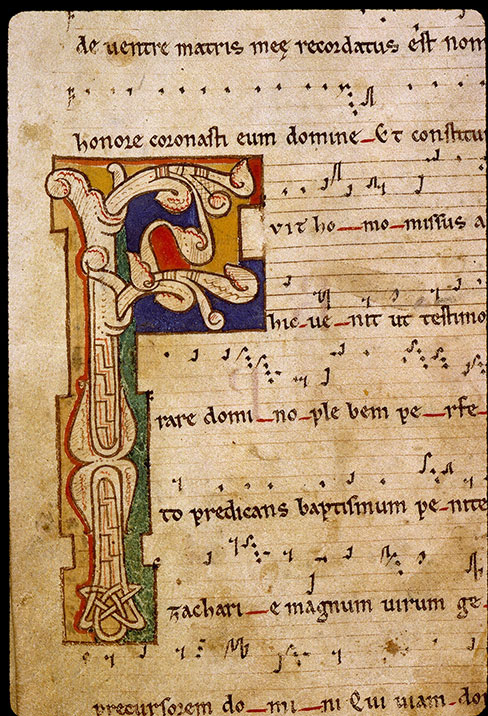 de ventre matris meę recordatus est nom
honore coronasti eum domine Et constitu
F vit ho mo missus a
hic ve nit ut testimo
rare domi no ple bem pe rfe
to predicans baptismum pe nite
zachari e magnum uirum ge
precursorem do mi ni Qui uiam do